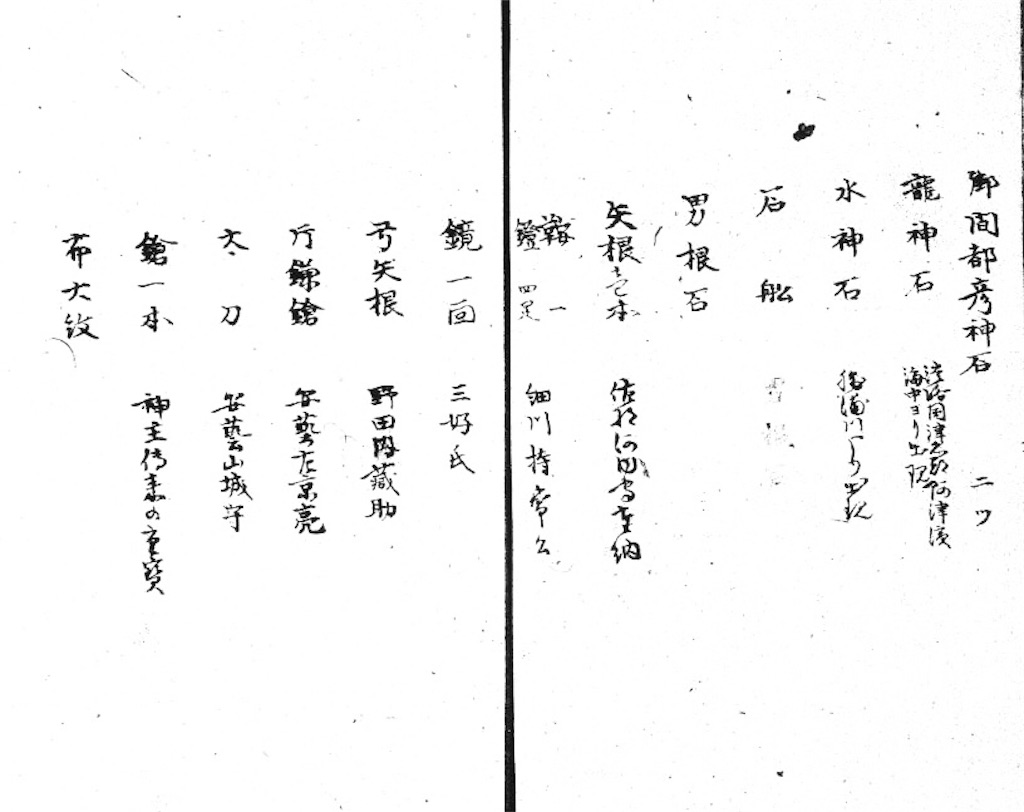 御間都彦神石 二ツ
龍神石 淡路国津名郡阿津濱
海中ヨリ出現
水神石 勝浦川ヨリ出現
石船
男根石
矢根壱本 佐 河 守奉納
鞍一
鐙四足 細川持常公
鏡一面 三好氏
弓矢根 野田内蔵助
片鎌鎗 安藝左京亮
太刀 安藝山城守
鎗一本 神主傳来の重寶
布大紋